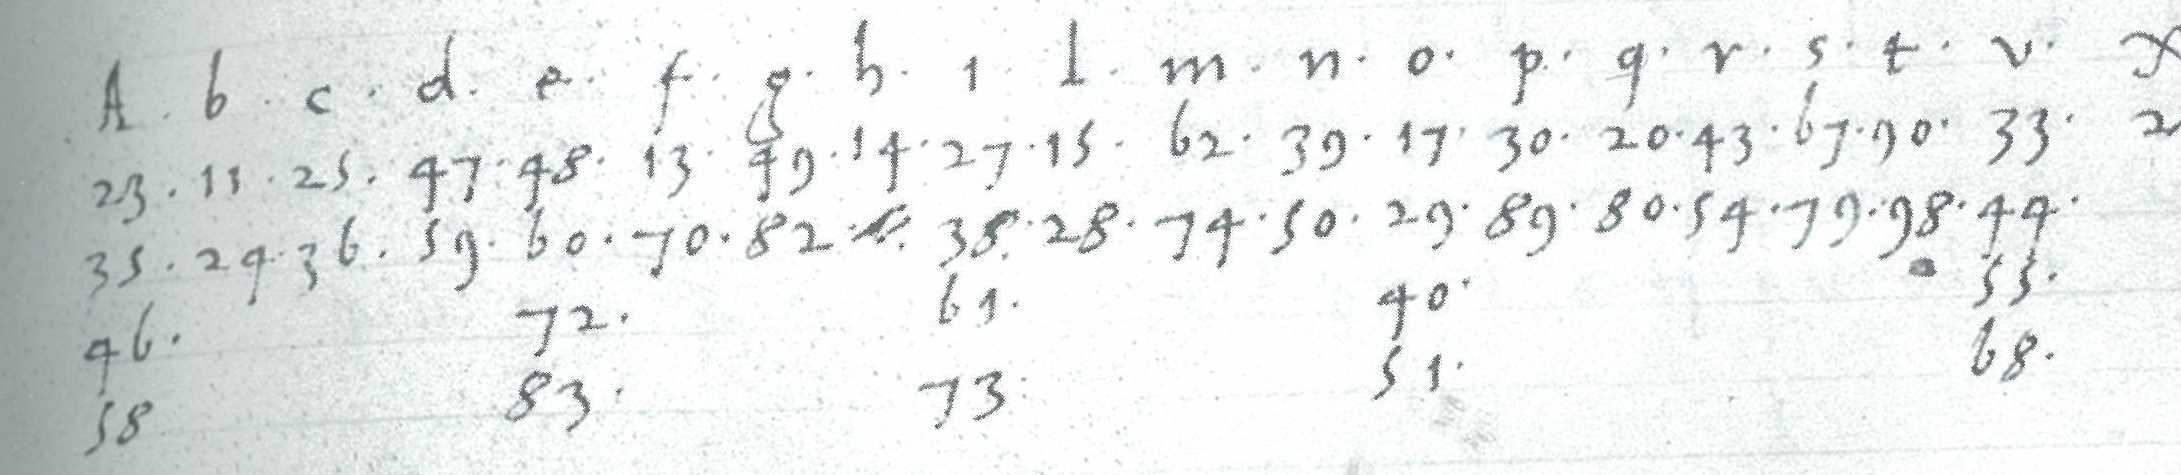 A . b . c . d . e . f . g . h . i . l . m . n . o . p . q . r . s . t . v . x
23 . 11 . 25 . 47 . 48 . 13 . 49 . 14 . 27 . 15 . 62 . 39 . 17 . 30 . 20 . 43 . 67 . 90 . 33 . 2
35 . 24 . 36 . 59 . 60 . 70 . 82 . 38 . 28 . 74 . 50 . 29 . 89 . 80 . 54 . 79 . 98 . 44 .
46 . 72 . 61 . 40 . 55 .
58 83 . 73 . 51 . 68 .